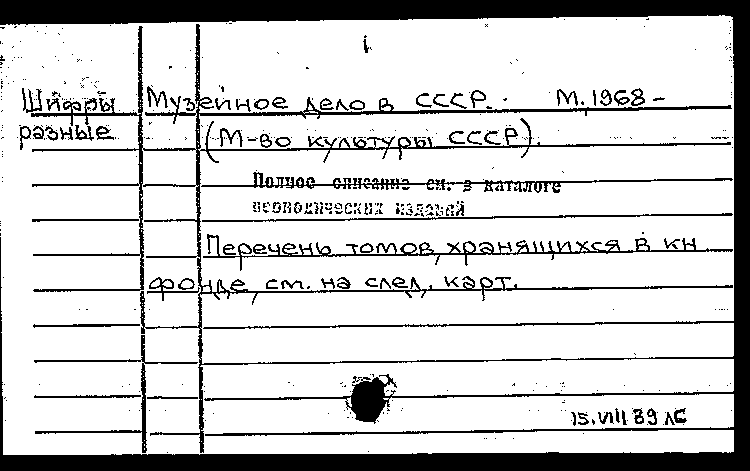 1
Шифры разные
Музейное дело в СССР. М., 1968 -
(М-во культуры СССР).
Полное описание см. в каталоге
периодических изданий
Перечень томов, хранящихся в кн
фонде, см. на след. карт.
15.VIII 89 ЛС